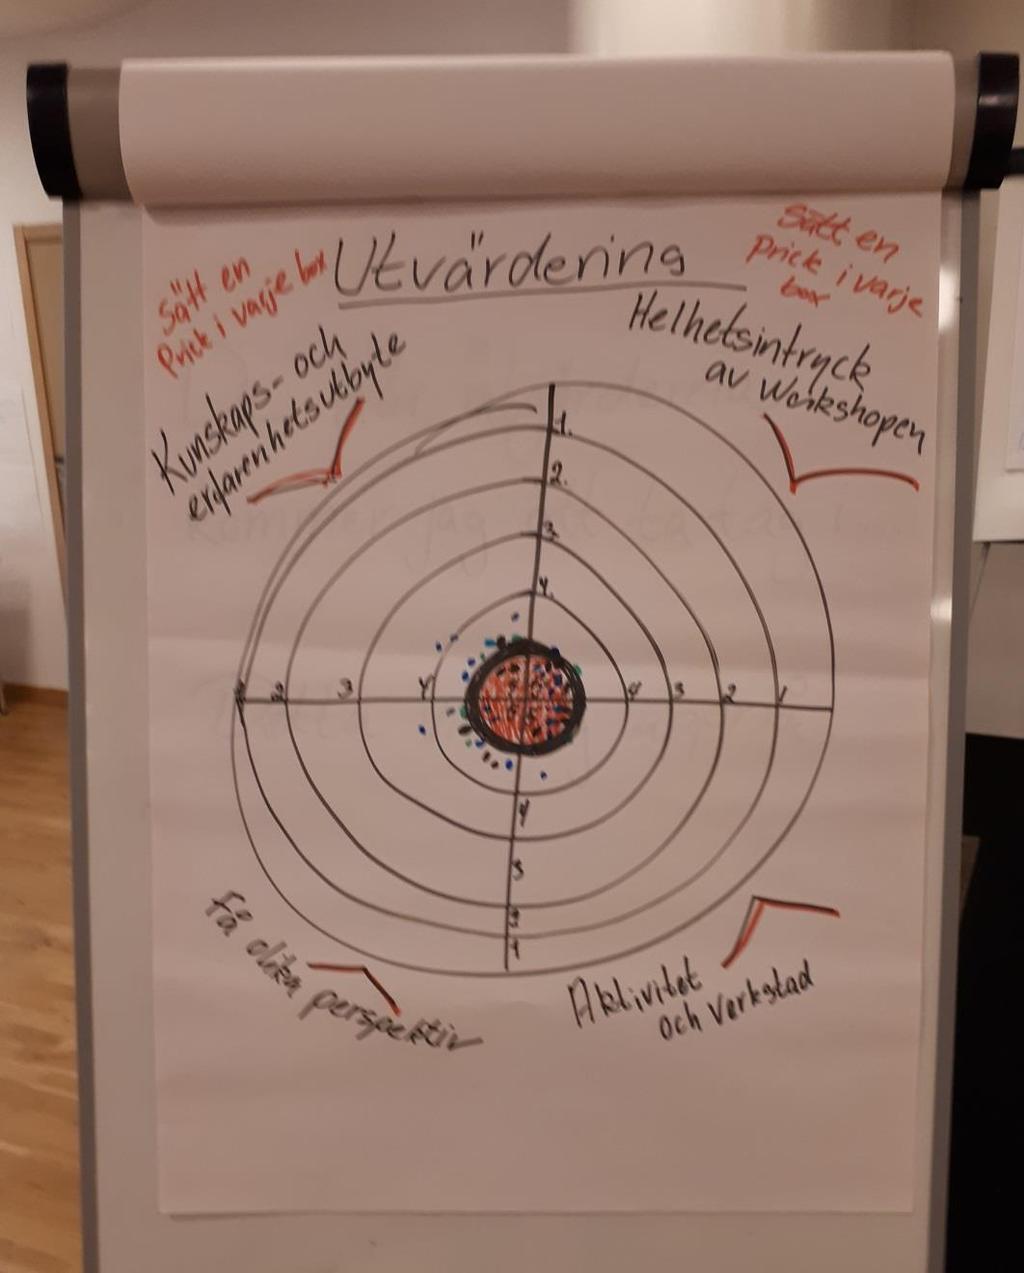 Utvärdering
Sätt en
Prick i varje box
Sätt en
Prick i varje
box
Kunskaps- och
erfarenhetsutbyte
Helhetsintryck
av Workshopen
1.
2.
3.
4.
1 2 3 4 4 3 2 1
4
3
2
1
Få olika perspektiv
Aktivitet
och verkstad